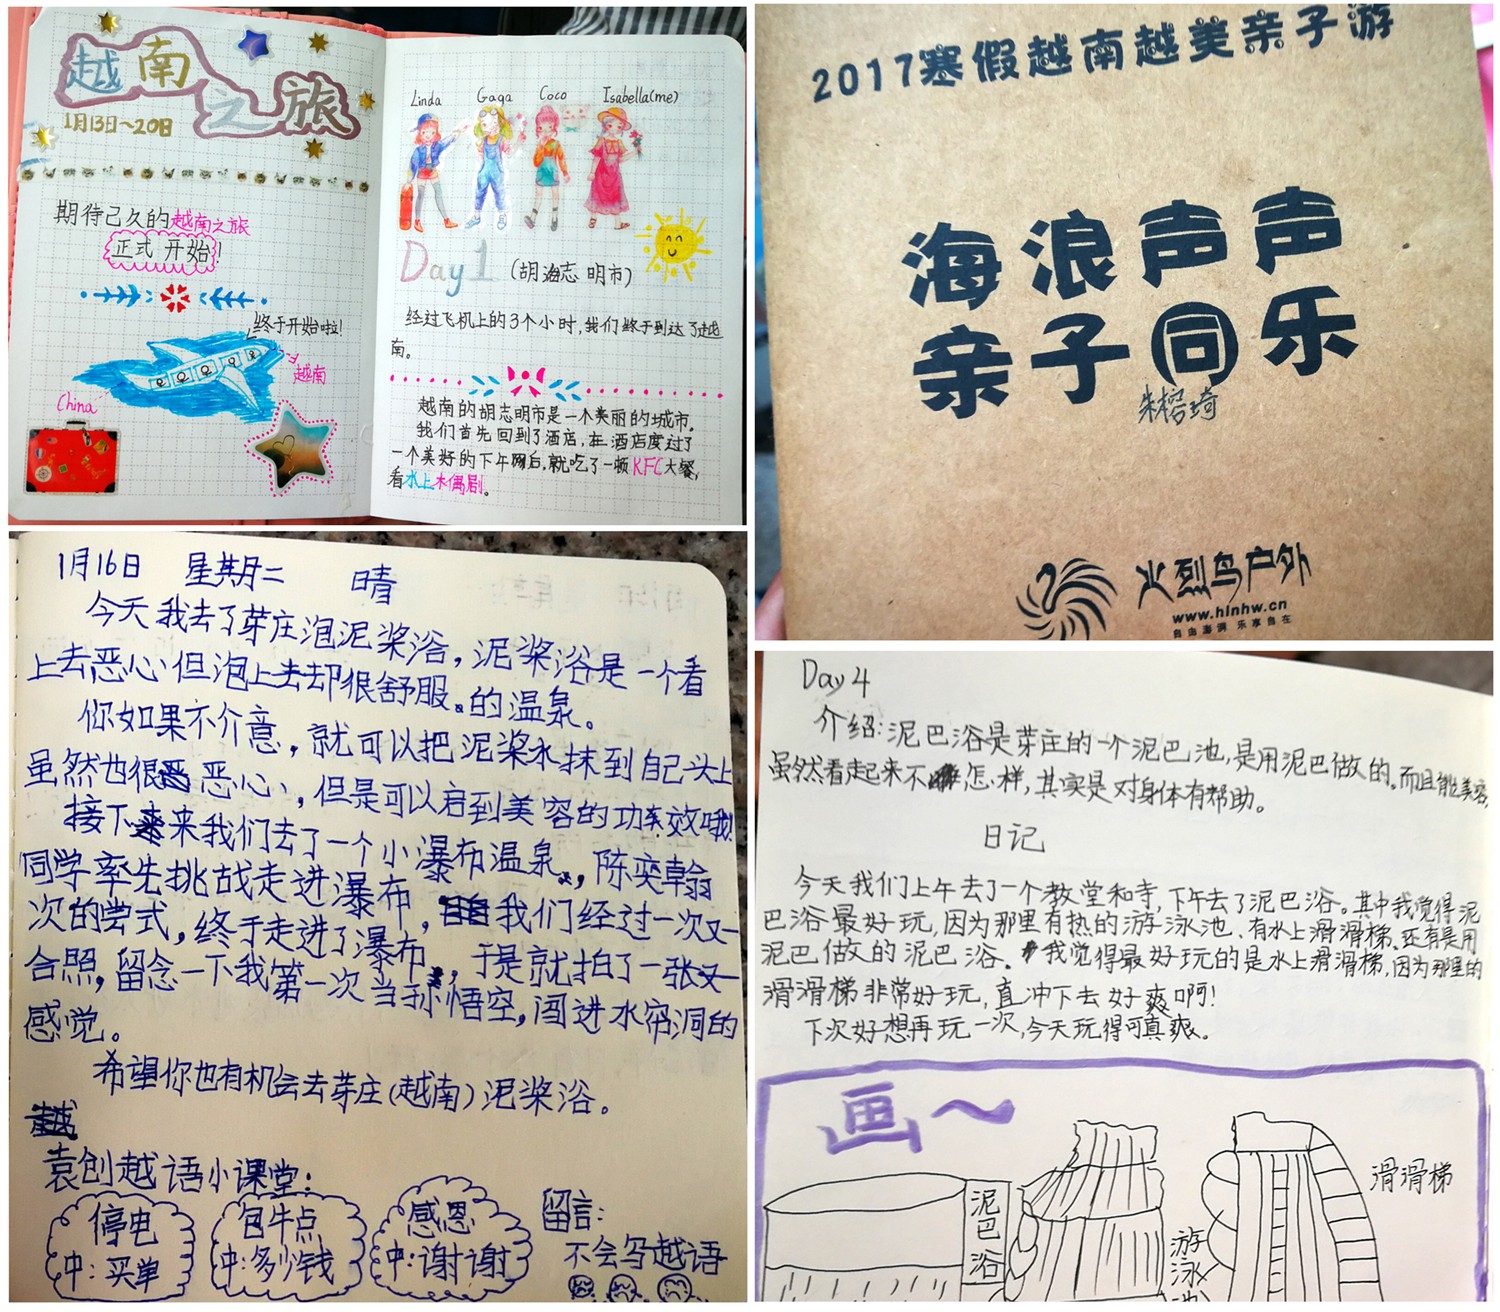 越南
之旅
1月13日~20日
期待己久的越南之旅
正式开始!
终于开始啦!
越南
China
Linda Gaga Coco Isabella(me)
Day1 (胡志明市)
经过飞机上的3个小时,我们终于到达了越
南。
越南的胡志明市是一个美丽的城市。
我们首先回到了酒店,在酒店度过了
一个美好的下午网后,就吃了一顿KFC大餐,
看水上木偶剧。
2017寒假越南越美亲子游
海浪声声
亲子同乐
朱榕琦
火烈鸟户外
www.hlnhw.cn
自由澎湃 乐享自在
1月16日 星期二 晴
今天我去了芽庄泡泥桨浴,泥桨浴是一个看
上去恶心但泡上去却很舒服的温泉。
你如果不介意,就可以把泥桨水抹到自己头上
虽然也很恶心,但是可以启到美容的功效哦!
接下来我们去了一个小瀑布温泉,陈奕翰
同学率先挑战走进瀑布,我们经过一次又一
次的尝式,终于走进了瀑布,于是就拍了一张
合照,留念一下我第一次当孙悟空,闯进水帘洞的
感觉。
希望你也有机会去芽庄(越南)泥桨浴。
袁创越语小课堂:
停电
中:买单
包牛点
中:多少钱
感恩
中:谢谢
留言:
不会写越语
Day 4
介绍:泥巴浴是芽庄的一个泥巴池,是用泥巴做的。而且能美容,
虽然看起来不怎样,其实是对身体有帮助。
日记
今天我们上午去了一个教堂和寺,下午去了泥巴浴。其中我觉得泥
巴浴最好玩,因为那里有热的游泳池、有水上滑滑梯。还有是用
泥巴做的泥巴浴。我觉得最好玩的是水上滑滑梯,因为那里的
滑滑梯非常好玩,直冲下去好爽啊!
下次好想再玩一次,今天玩得可真爽。
画~
泥巴浴
游泳池
滑滑梯